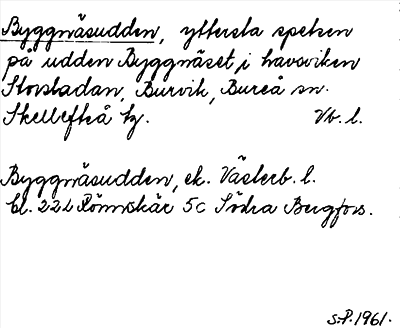 Byggnäsudden, yttersta spetsen
på udden Byggnäset, i havsviken
Storsladan, Burvik, Bureå sn.
Skellefteå tg. Vb. l.
Byggnäsudden, ek. Västerb. l.
bl. 22L Rönnskär 5c Södra Bergfors.
S.P. 1961.